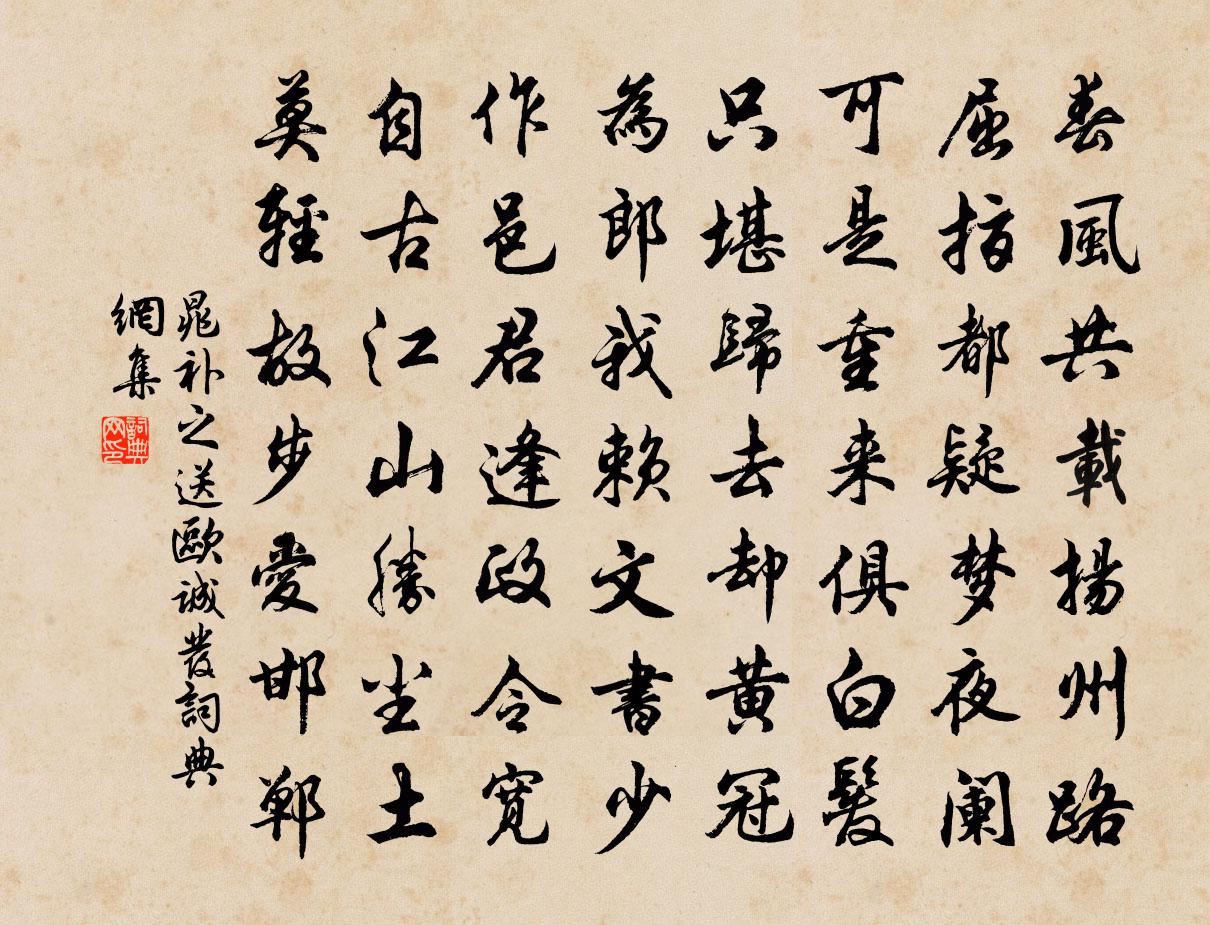 春風共載揚州路
屈指都疑梦夜阑
可是重来俱白髮
只堪歸去却黄冠
為郎我赖文書少
作邑君逢政令寛
自古江山勝尘土
莫輕故步愛邯鄲
晁补之送歐诚發詞典
網集
詞典
网印